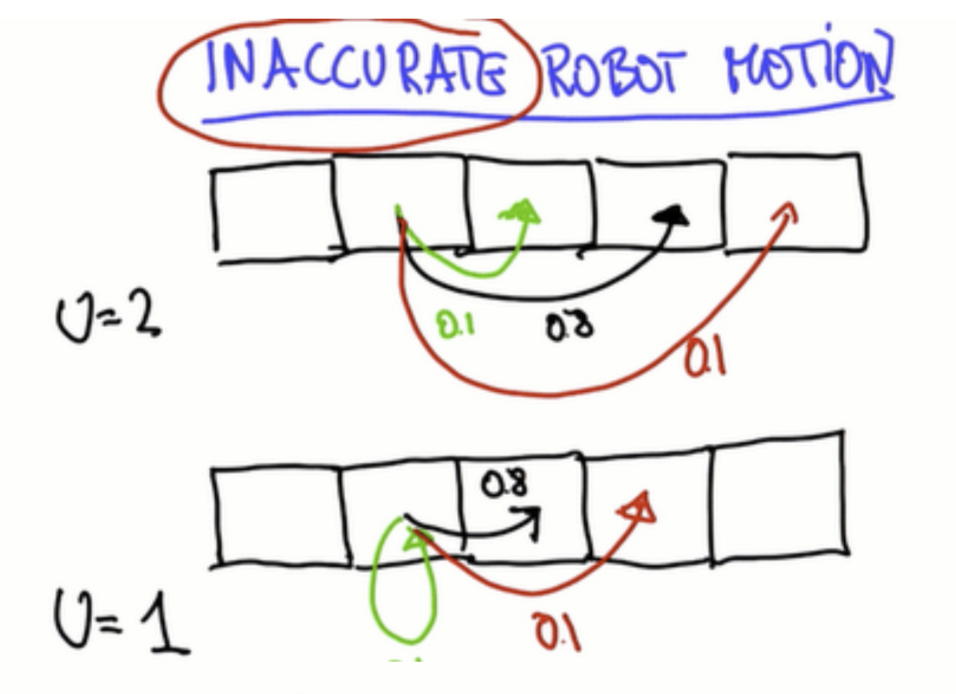 INACCURATE ROBOT MOTION
U=2
0.1 0.8 0.1
0.8
U=1
0.1